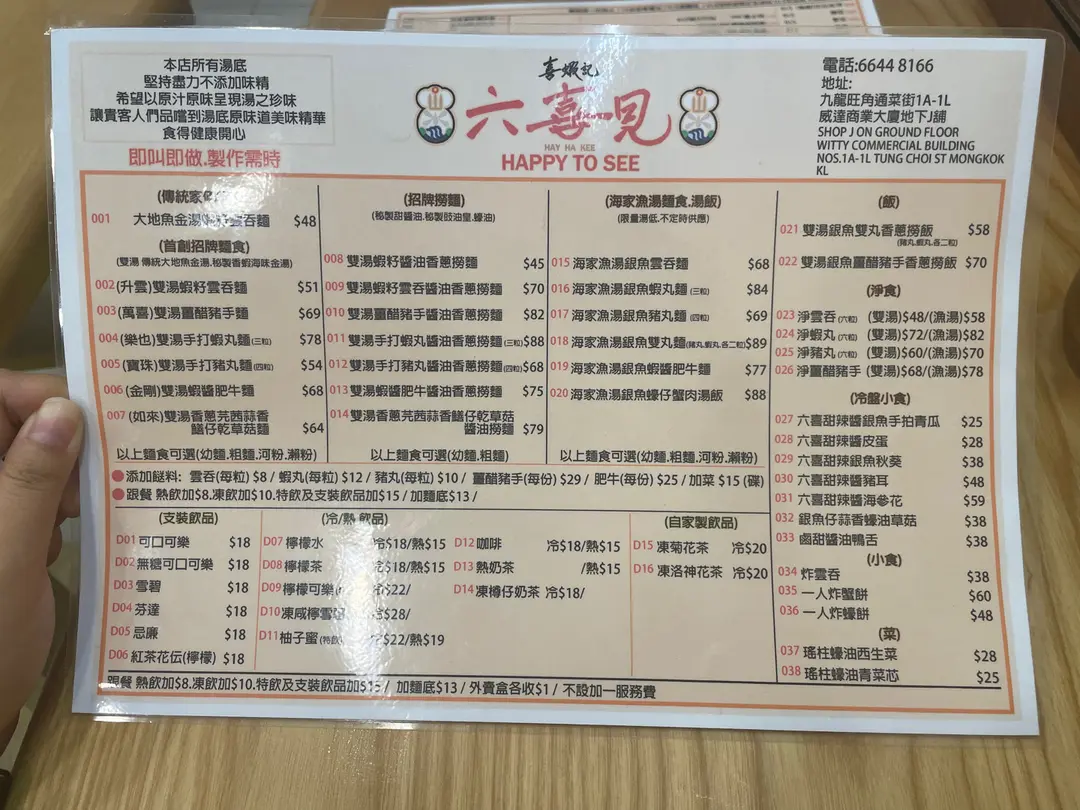 本店所有湯底
堅持盡力不添加味精
希望以原汁原味呈現湯之珍味
讓貴客人們品嚐到湯底原味道美味精華
食得健康開心
即叫即做.製作需時
喜蝦記
六喜見
HAY HA KEE
HAPPY TO SEE
電話:6644 8166
地址:
九龍旺角通菜街1A-1L
威達商業大廈地下J舖
SHOP J ON GROUND FLOOR
WITTY COMMERCIAL BUILDING
NOS.1A-1L TUNG CHOI ST MONGKOK
KL
(傳統家
001 大地魚金湯蝦籽雲吞麵 $48
(首創招牌麵食)
(雙湯 傳統大地魚金湯.秘製香蝦海味金湯)
002 (升雲)雙湯蝦籽雲吞麵 $51
003 (萬喜)雙湯薑醋豬手麵 $69
004 (樂也)雙湯手打蝦丸麵(三粒) $78
005 (寶珠)雙湯手打豬丸麵(四粒) $54
006 (金剛)雙湯蝦醬肥牛麵 $68
007 (如來)雙湯香蔥芫茜蒜香
鱔仔乾草菇麵 $64
以上麵食可選(幼麵.粗麵.河粉.瀨粉)
(招牌撈麵)
(秘製甜醬油.秘製豉油皇.蠔油)
008 雙湯蝦籽醬油香蔥撈麵 $45
009 雙湯蝦籽雲吞醬油香蔥撈麵 $70
010 雙湯薑醋豬手醬油香蔥撈麵 $82
011 雙湯手打蝦丸醬油香蔥撈麵(三粒) $88
012 雙湯手打豬丸醬油香蔥撈麵(四粒) $68
013 雙湯蝦醬肥牛醬油香蔥撈麵 $75
014 雙湯香蔥芫茜蒜香鱔仔乾草菇
醬油撈麵 $79
以上麵食可選(幼麵.粗麵)
(海家漁湯麵食.湯飯)
(限量湯低.不定時供應)
015 海家漁湯銀魚雲吞麵 $68
016 海家漁湯銀魚蝦丸麵 (三粒) $84
017 海家漁湯銀魚豬丸麵 (四粒) $69
018 海家漁湯銀魚雙丸麵 (豬丸,蝦丸,各二粒) $89
019 海家漁湯銀魚蝦醬肥牛麵 $77
020 海家漁湯銀魚蠔仔蟹肉湯飯 $88
以上麵食可選(幼麵.粗麵.河粉.瀨粉)
●添加餸料: 雲吞(每粒) $8 / 蝦丸(每粒) $12 / 豬丸(每粒) $10 / 薑醋豬手(每份) $29 / 肥牛(每份) $25 / 加菜 $15 (碟)
●跟餐 熱飲加$8.凍飲加$10.特飲及支裝飲品加$15 / 加麵底$13 /
(支裝飲品)
D01 可口可樂 $18
D02 無糖可口可樂 $18
D03 雪碧 $18
D04 芬達 $18
D05 忌廉 $18
D06 紅茶花伝(檸檬) $18
(冷/熱 飲品)
D07 檸檬水 冷$18/熱$15
D08 檸檬茶 冷$18/熱$15
D09 檸檬可樂 冷$22/
D10 凍咸檸雪碧 冷$28/
D11 柚子蜜 (特飲) 冷$22/熱$19
D12 咖啡 冷$18/熱$15
D13 熱奶茶 /熱$15
D14 凍樽仔奶茶 冷$18/
(自家製飲品)
D15 凍菊花茶 冷$20
D16 凍洛神花茶 冷$20
跟餐 熱飲加$8.凍飲加$10.特飲及支裝飲品加$15 / 加麵底$13 / 外賣盒各收$1 / 不設加一服務費
(飯)
021 雙湯銀魚雙丸香蔥撈飯 $58
(豬丸,蝦丸,各二粒)
022 雙湯銀魚薑醋豬手香蔥撈飯 $70
(淨食)
023 淨雲吞 (六粒) (雙湯)$48/(漁湯)$58
024 淨蝦丸 (六粒) (雙湯)$72/(漁湯)$82
025 淨豬丸 (六粒) (雙湯)$60/(漁湯)$70
026 淨薑醋豬手 (雙湯)$68/(漁湯)$78
(冷盤小食)
027 六喜甜辣醬銀魚手拍青瓜 $25
028 六喜甜辣醬皮蛋 $28
029 六喜甜辣銀魚秋葵 $38
030 六喜甜辣醬豬耳 $48
031 六喜甜辣醬海參花 $59
032 銀魚仔蒜香蠔油草菇 $38
033 鹵甜醬油鴨舌 $38
(小食)
034 炸雲吞 $38
035 一人炸蟹餅 $60
036 一人炸蠔餅 $48
(菜)
037 瑤柱蠔油西生菜 $28
038 瑤柱蠔油青菜芯 $25